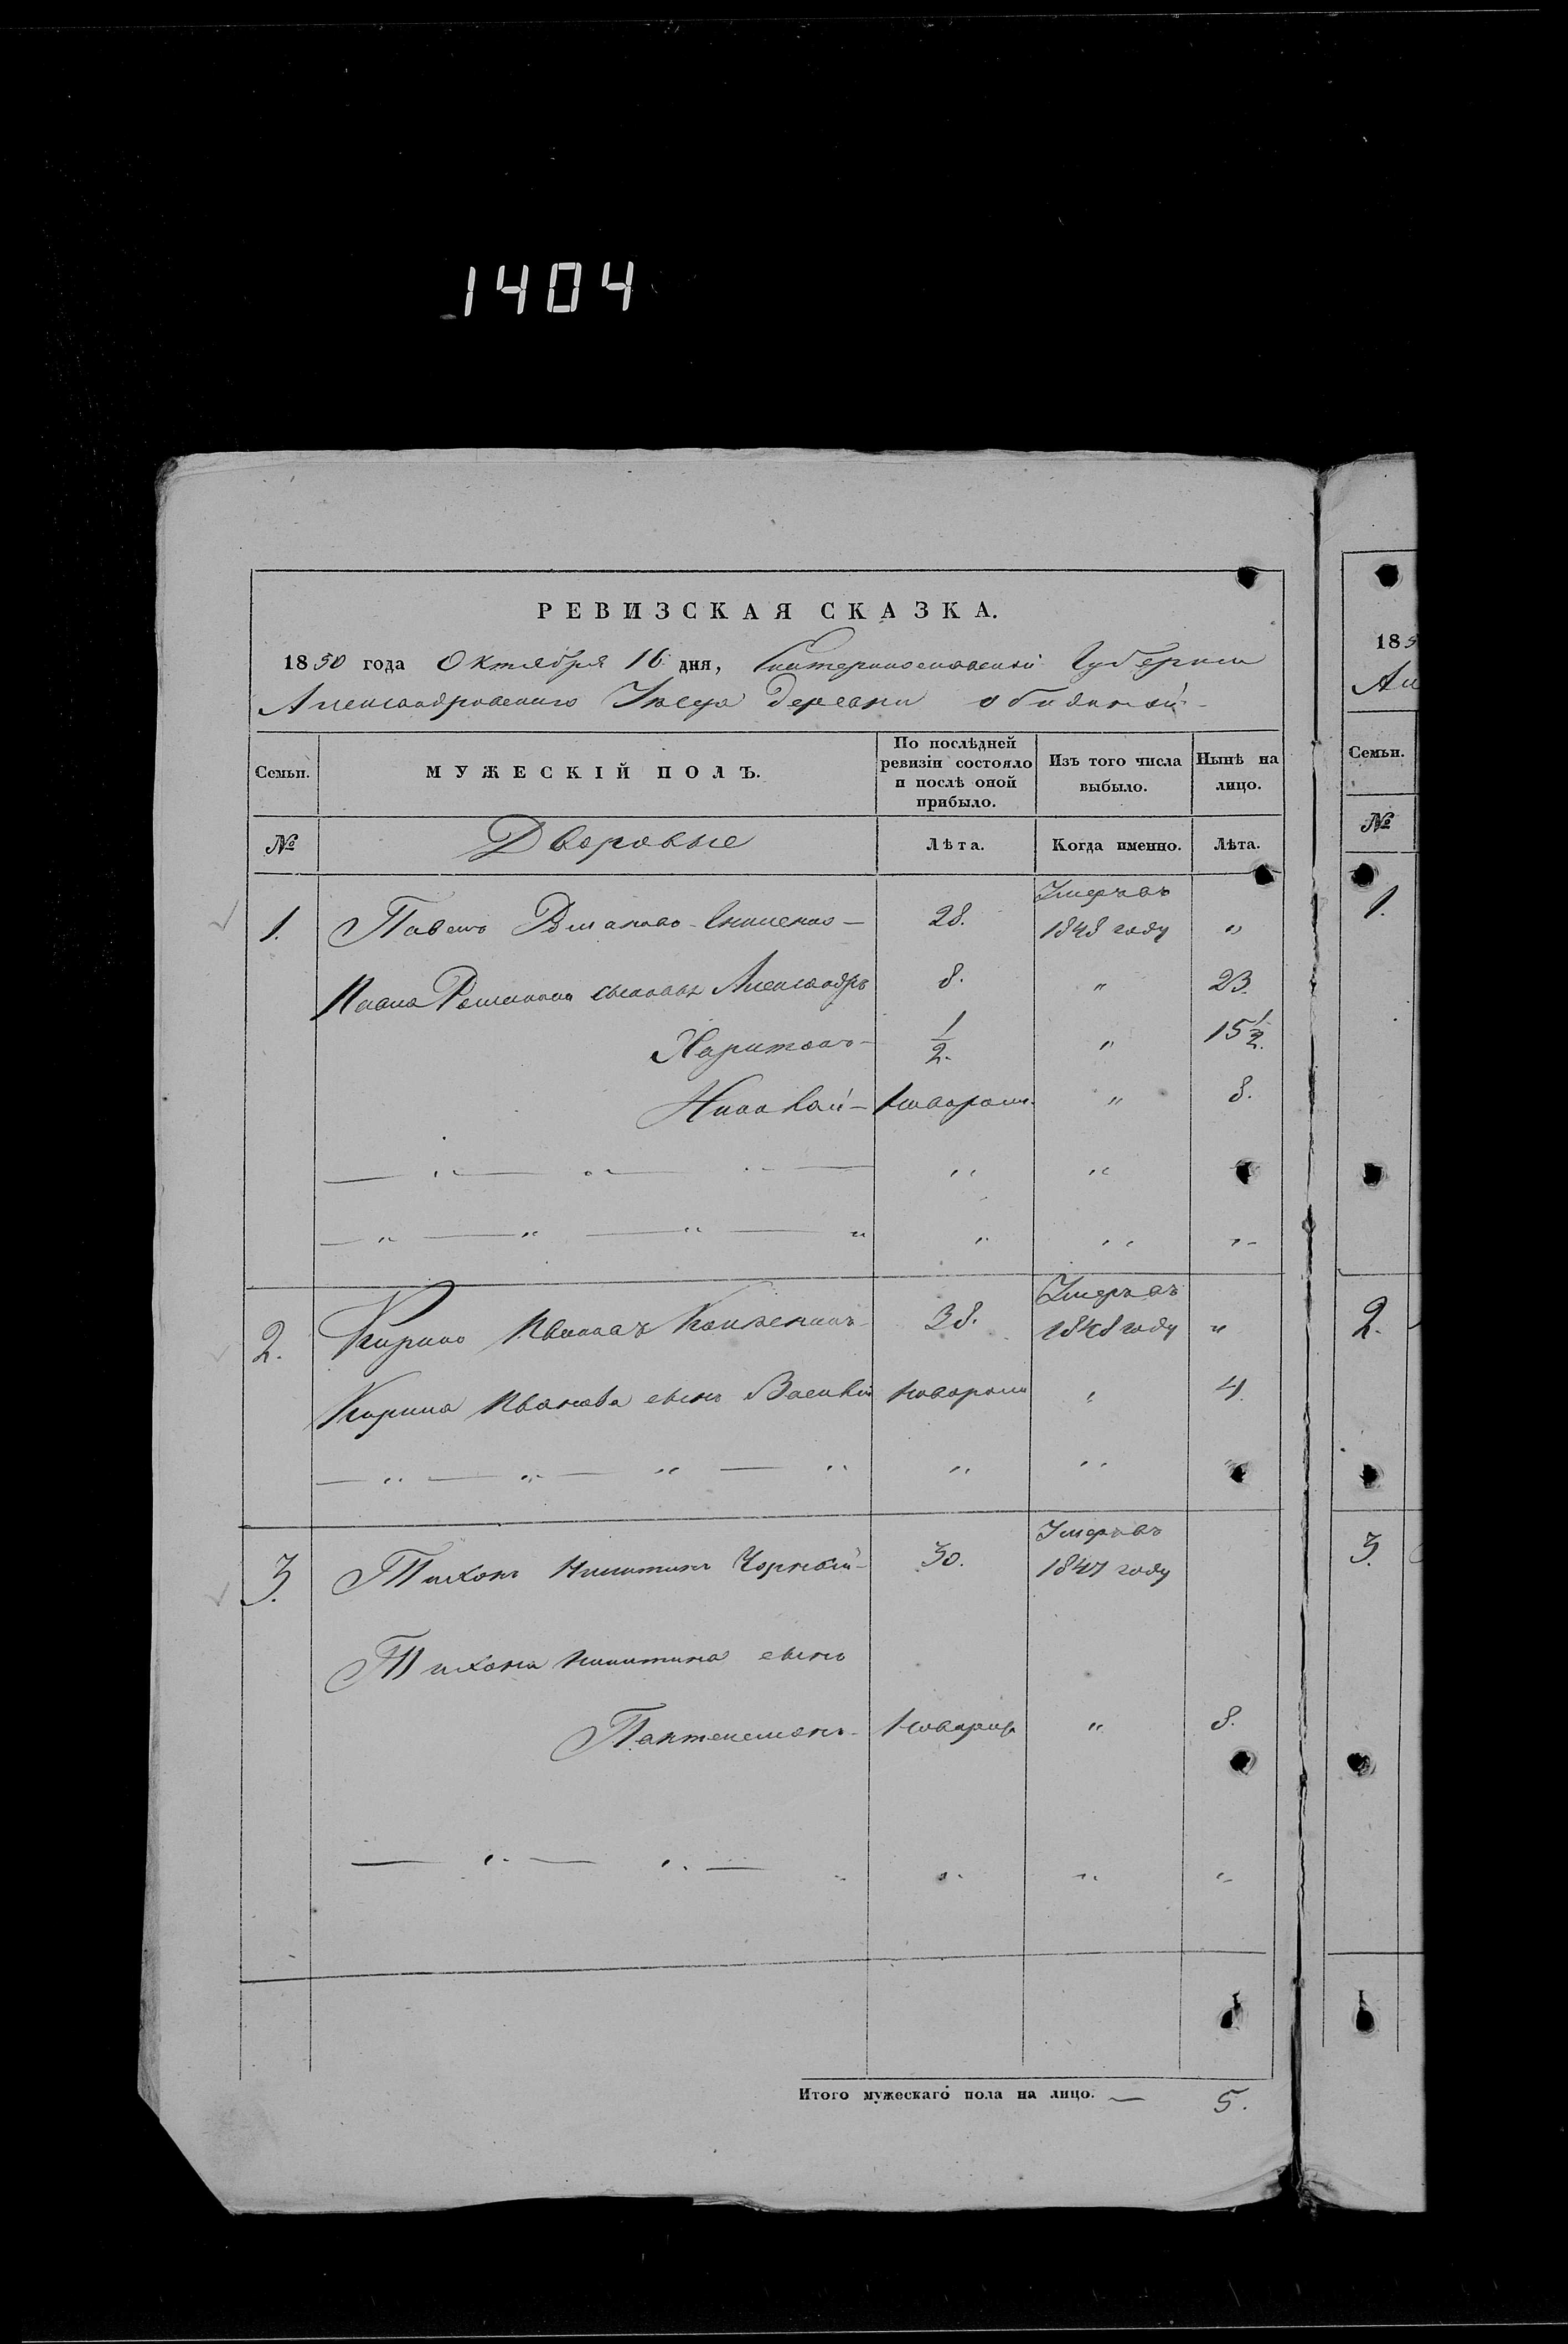 1404
РЕВИЗСКАЯ СКАЗКА.
1850 года Октября 16 дня, Екатеринославской Губернии
Александровского Уезда деревни обидной
Семьи.
МУЖЕСКІЙ ПОЛЪ.
По послѣдней ревизіи состояло и послѣ оной прибыло.
Изъ того числа выбыло.
Нынѣ на лицо.
№
Дворовые
Лѣта.
Когда именно.
Лѣта.
1. Павелъ 28. Умеръ въ 1848 году "
Павла сыновья Александръ 8. " 23.
Харитонъ 1/2. " 15 1/2.
Николай новорож. " 8.
2. Кирило Ивановъ 38. Умеръ въ 1848 году "
Кирила Иванова сынъ Василий новорож " 4.
3. Тихонъ Никитинъ Чорный 30. Умеръ въ 1847 году
Тихона Никитина сынъ
Пантелемонъ новорож " 8.
Итого мужескаго пола на лицо. — 5.
185
Ал
Семьи.
№
1.
2.
3.